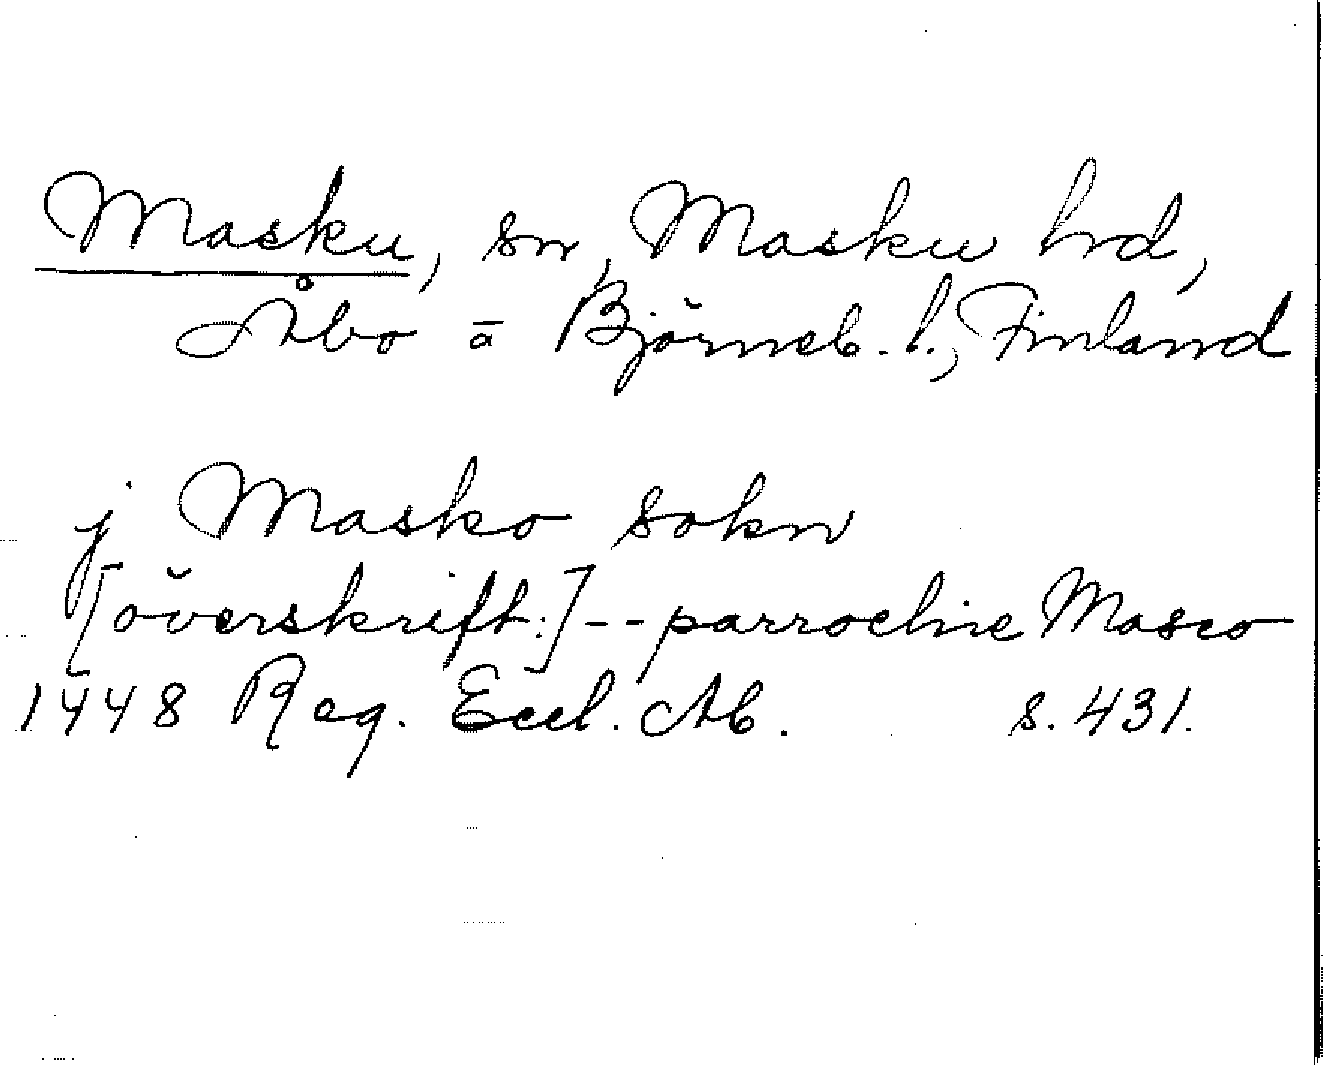 Masku, sn, Masku hd,
Åbo ā Björneb. l., Finland
j Masko sokn
[överskrift:] -- parrochie Masco
1448 Reg. Eccl. Ab. s. 431.